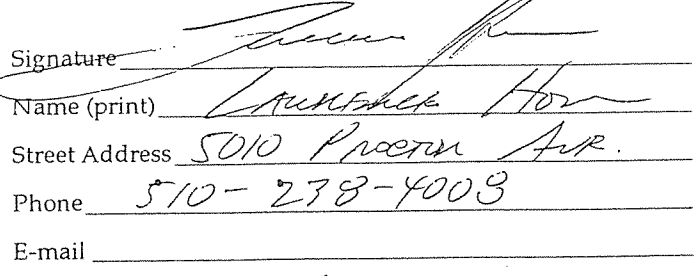 Signature
Name (print)
Street Address 5010 Proctor Ave.
Phone 510-238-4008
E-mail